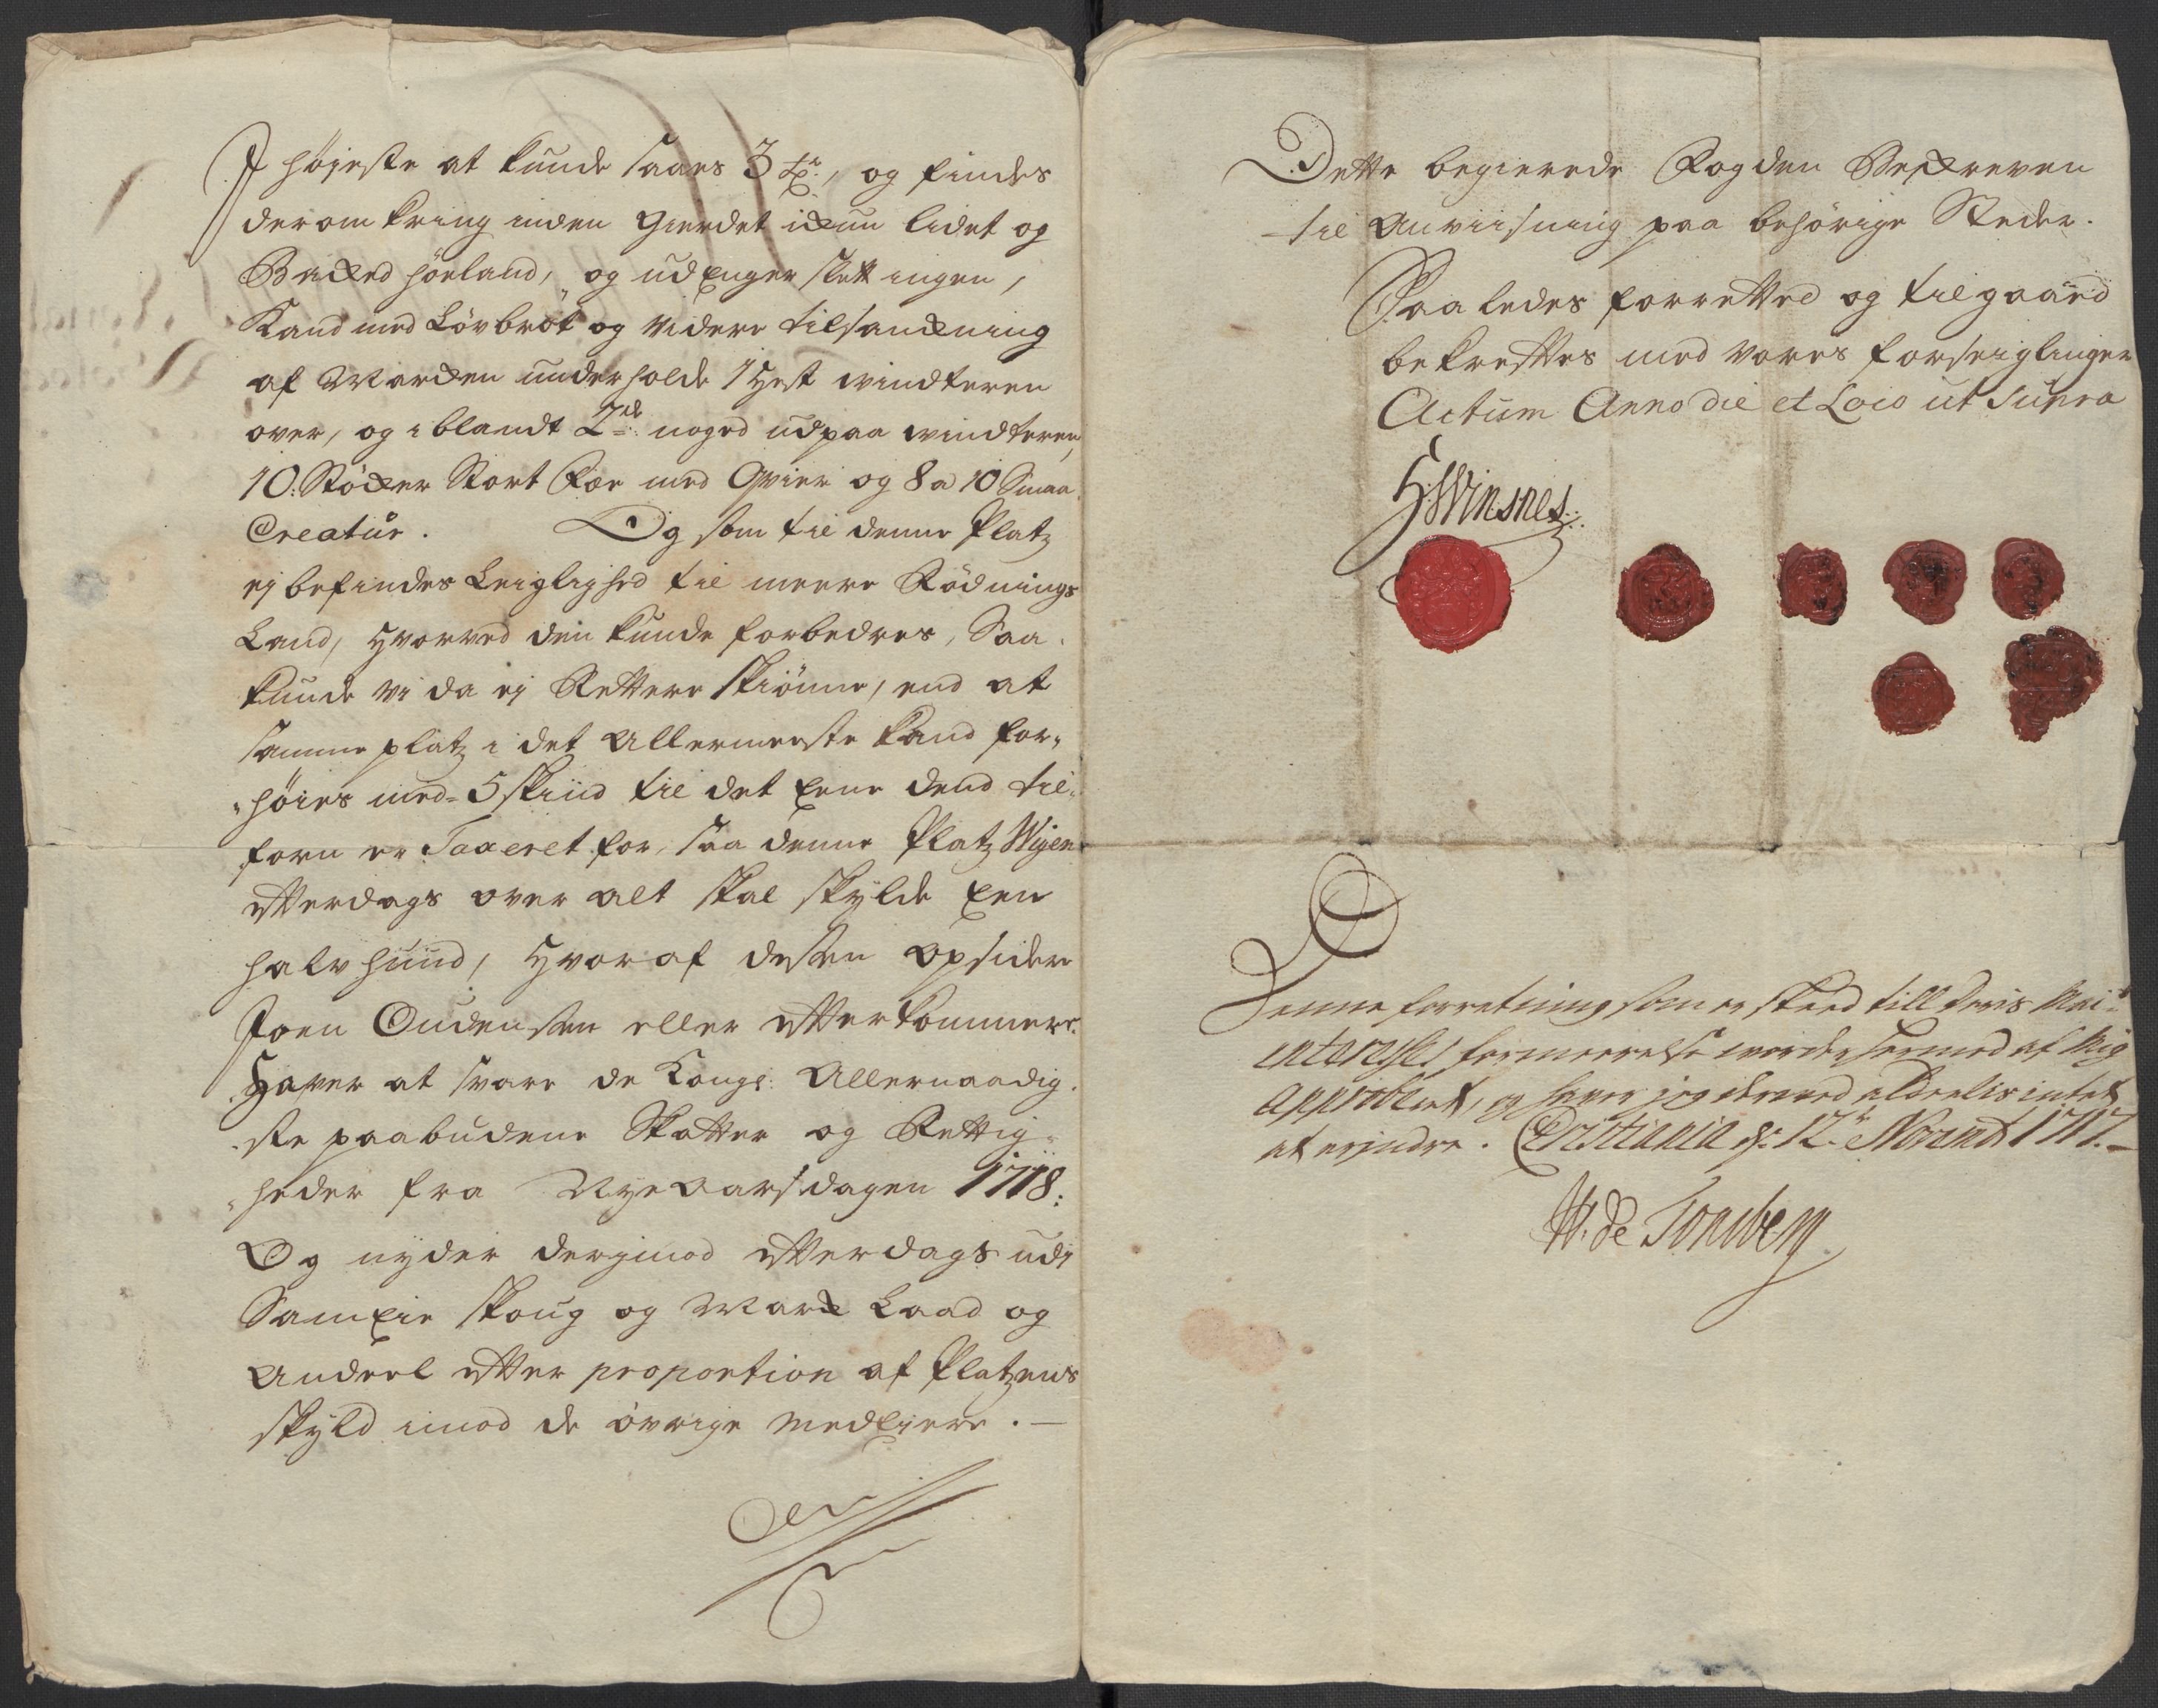 J højeste at kunde saaes 3 tr:, og findes
der om kring inden Gierdet ickun lidet og
Backed höeland, og ud Enger slett ingen,
Kand med Lövbröt og videre tilsanckning
af Marcken underholde 1 Hest vindteren
over, og i blandt 2de noged ud paa vindteren,
10: Støcker Stort Fæe med Qvier og 8 a 10 Smaa
Creatur. Og som til denne Platz
ej befindes Leiglighed til meere Rödnings
Land, Hvorved den kunde forbedres, Saa
kunde vi da ej Rettere skiönne, end at
samme platz i det Allermeeste kand for,,
,,höies med 5 skind til det Eene dend til,,
forn er Taxeret for, saa denne Platz Wigen
efterdags over alt skal skylde Een
halv huud, Hvor af dessen opsidere
Joen Oudensen eller efterkommere
Haver at svare de Kongl: Allernaadig,,
,,ste paabudene Skatter og Rettig,,
,,heder fra Nye Aars dagen 1718:
Og nyder derjmod efterdags udj
Sam Eie skoug og Marck Laad og
Andeel efter proportion af Platzens
skyld imod de övrige Medeijere. —
Dette begierede Fogden Beskreven
til Anviisning paa behörige Steder.
Saaledes forretted og tilgaaed
bekreftes med vores forseiglinger
Actum Anno die et Loco ut Supra
H Winsnes:
Denne forretning som er skeed till Deris Mai:ts
interesses formeerelse worder hermed af Mig
approberet, og hafver jeg derved aldeelis intet
at erjndre. Christiania d: 12te Novembr 1717. —
W. de Tonsberg